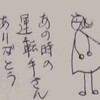 あの時の
運転手さん
ありがとう